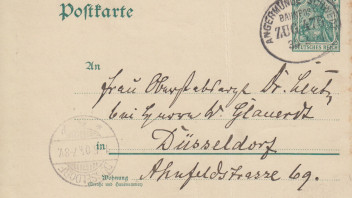 Postkarte
ANGERMÜNDE
BAHNPOST
ZUG
DEUTSCHES REICH
An
Frau Oberstabsarzt Dr. Lentz
bei Herrn W. Glauerdt
in: Düsseldorf
Wohnung
(Straße und Hausnummer)
Ahnfeldstrasse 69.